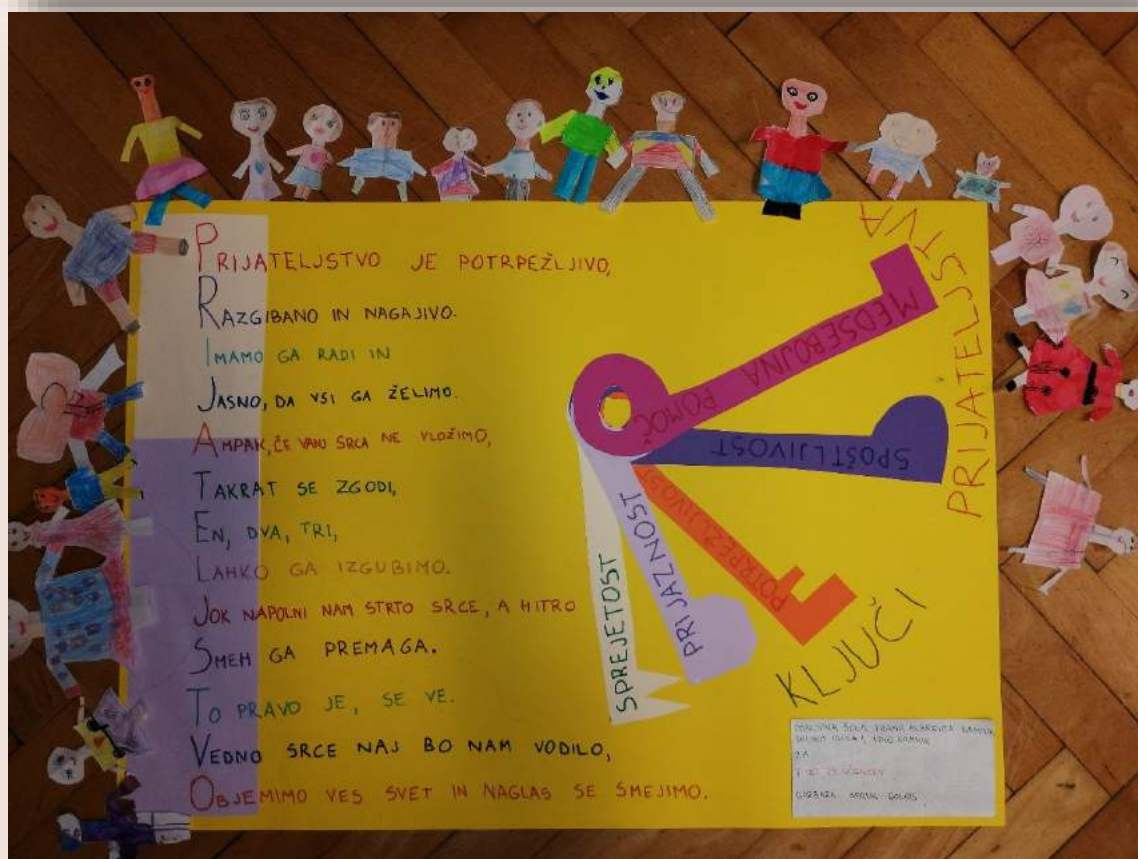 PRIJATELJSTVO JE POTRPEŽLJIVO,
RAZGIBANO IN NAGAJIVO.
IMAMO GA RADI IN
JASNO, DA VSI GA ŽELIMO.
AMPAK, ČE VANJ SRCA NE VLOŽIMO,
TAKRAT SE ZGODI,
EN, DVA, TRI,
LAHKO GA IZGUBIMO.
JOK NAPOLNI NAM STRTO SRCE, A HITRO
SMEH GA PREMAGA.
TO PRAVO JE, SE VE.
VEDNO SRCE NAJ BO NAM VODILO,
OBJEMIMO VES SVET IN NAGLAS SE SMEJIMO.
KLJUČI
PRIJATELJSTVA
MEDSEBOJNA
POMOČ
SPOŠTLJIVOST
POTRPEŽLJIVOST
PRIJAZNOST
SPREJETOST
ŠOLA